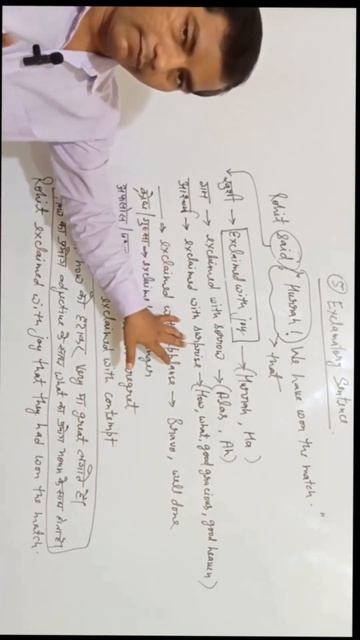 (5) Exclamatory Sentence.
Rohit said, "Hurrah! We have won the match."
that
खुशी → Exclaimed with joy → (Hurrah, Ha)
गम → exclaimed with sorrow → (Alas, Ah)
आश्चर्य → exclaimed with surprise → (How, what, good gracious, good heaven)
→ exclaimed with → Bravo, well done
क्रोध/गुस्सा → exclaimed
regret
exclaimed with contempt
how को हटाकर Very या great लगाते हैं।
का प्रयोग adjective के साथ what का प्रयोग noun के साथ होता है।
Rohit exclaimed with joy that they had won the match.